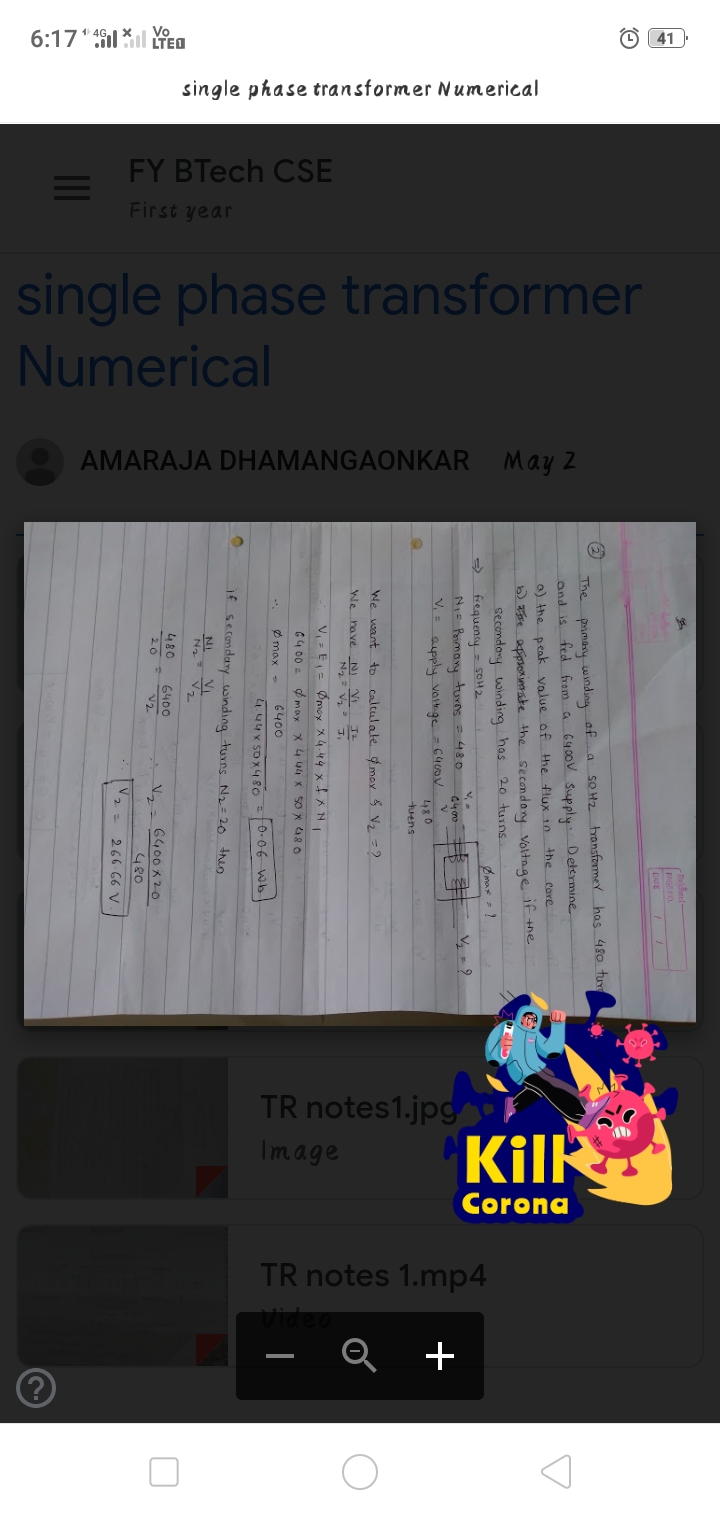 6:17
4G
Vo
LTE
41
single phase transformer Numerical
FY BTech CSE
First year
single phase transformer
Numerical
AMARAJA DHAMANGAONKAR May 2
②
The primary winding of a 50Hz transformer has 480 turn
and is fed from a 6400V supply. Determine
a) the peak value of the flux in the core
b) the secondary voltage if the
secondary winding has 20 turns.
⇒ frequency = 50HZ
N1 = Primary turns = 480
V1 = supply voltage = 6400V
V1 =
6400
V
480
turns
Ømax = ?
V2 = ?
We want to calculate Ømax & V2 = ?
We have N1/N2 = V1/V2 = I2/I1
∴ V1 = E1 = Ømax x 4.44 x f x N1
6400 = Ømax x 4.44 x 50 x 480
∴ Ømax = 6400 / 4.44 x 50 x 480 = 0.06 Wb
if secondary winding turns N2 = 20 then
N1/N2 = V1/V2
480/20 = 6400/V2 ∴ V2 = 6400 x 20 / 480
∴ V2 = 266.66 V
Kill
Corona
TR notes1.jpg
Image
TR notes 1.mp4
Video